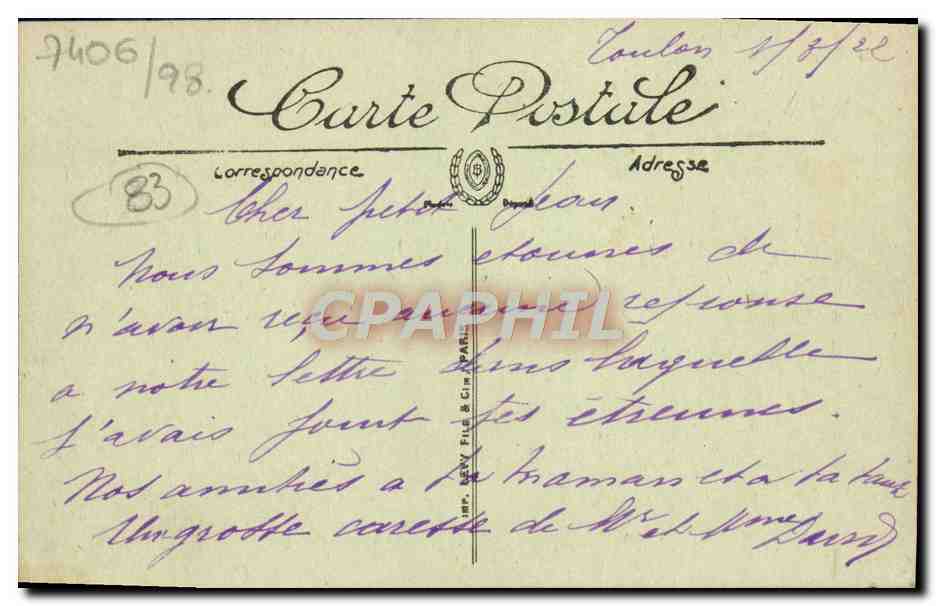 7406/98.
Toulon 1/3/22
Carte Postale
Correspondance
Adresse
Modèle Déposé
83
Cher petit Jean
Nous sommes etonnes de
n'avoir reçu aucune reponse
a notre lettre dans laquelle
j'avais joint tes étrennes.
Nos amitiés a ta maman et a ta tante
Un grosse caresse de Mr et Mme
IMP. LEVY FILS & Cie, PARIS
CPAPHIL